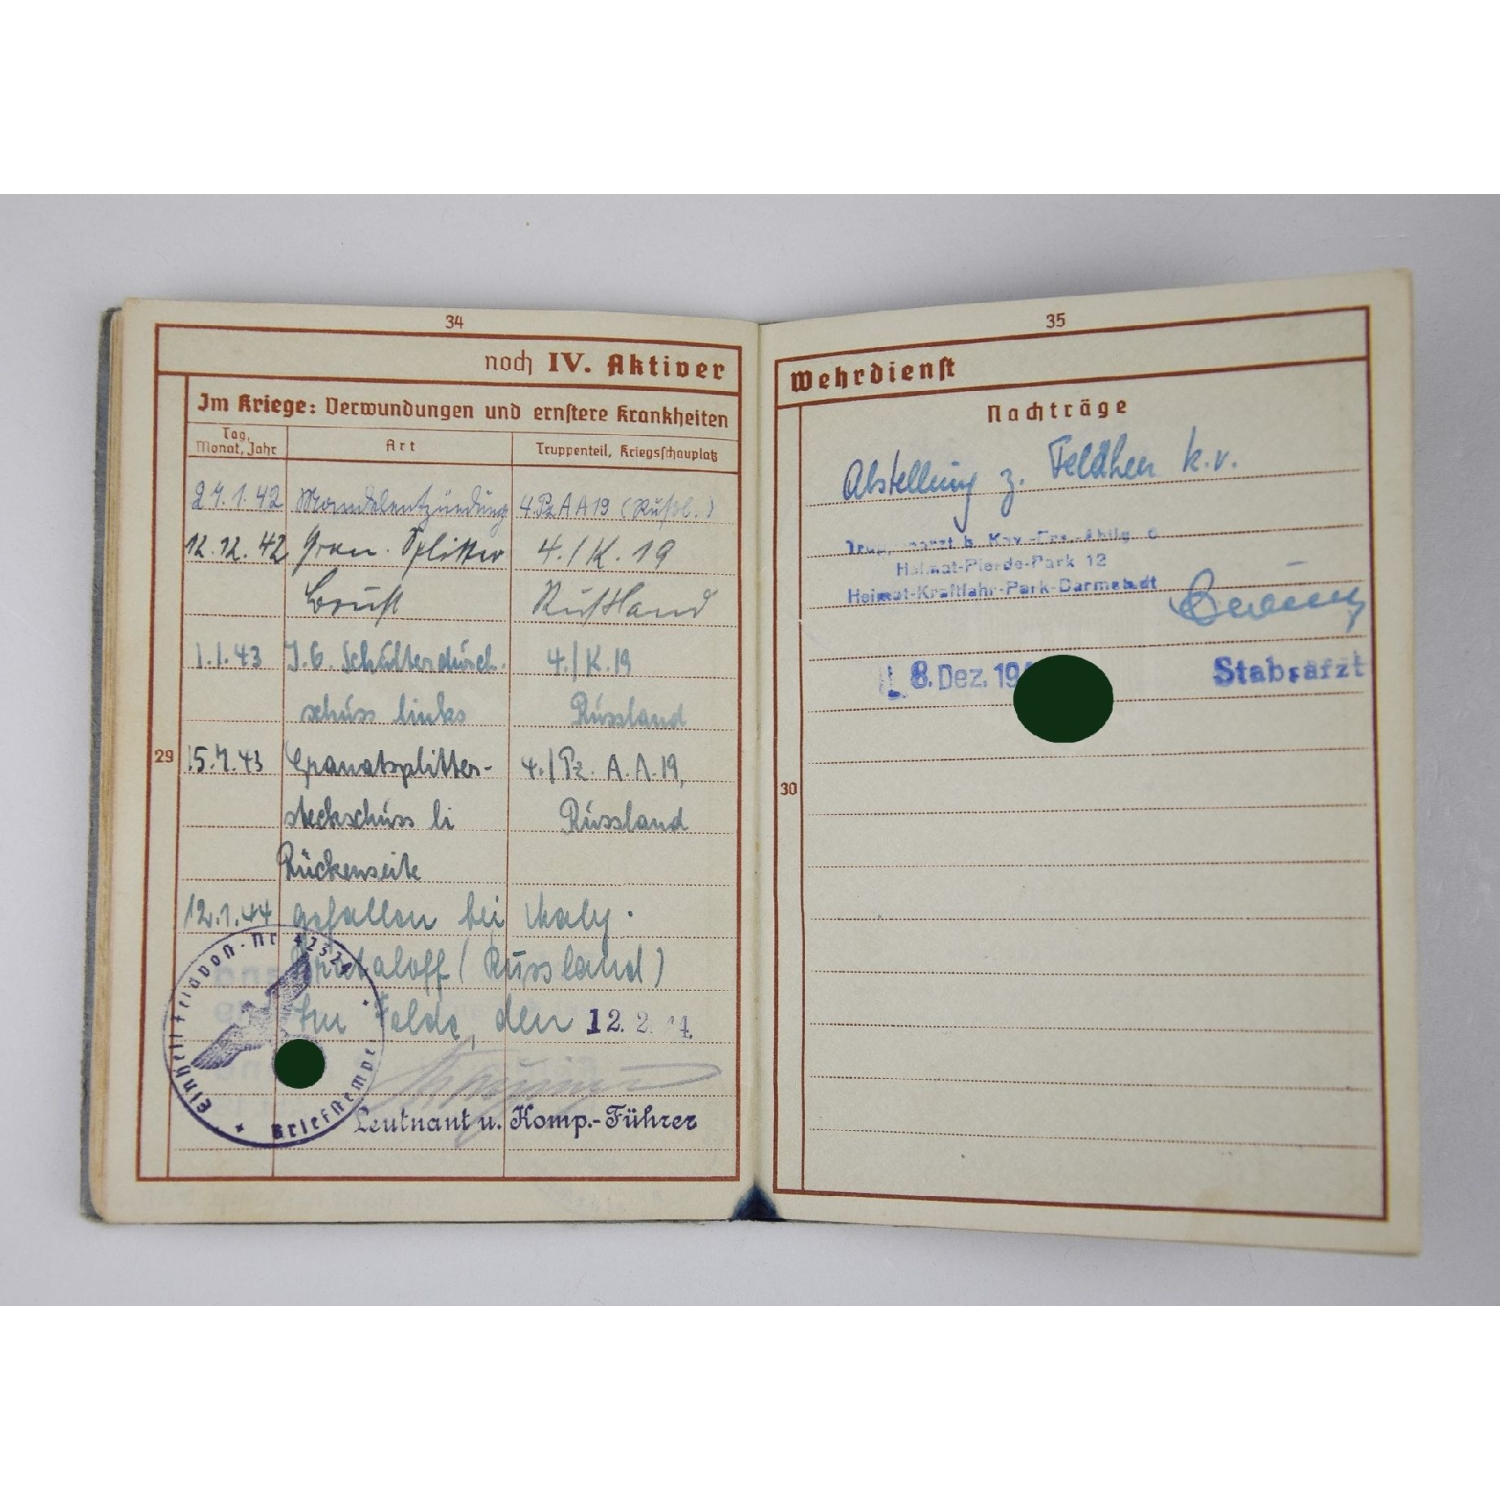 34
noch IV. Aktiver
Im Kriege: Verwundungen und ernstere Krankheiten
Tag, Monat, Jahr
Art
Truppenteil, Kriegsschauplatz
24.1.42 Mandelentzündung 4.Pz.A.A.19 (Rußl.)
12.12.42 Gran. Splitter 4./K.19
Brust Rußland
1.1.43 I.G. Schulterdurch- 4./K.19
schuss links Russland
29
15.7.43 Granatsplitter- 4./Pz. A.A.19,
steckschuss li Russland
Rückenseite
12.1.44 gefallen bei Maly-
(Russland)
Im Felde, den 12. 2. 44
Einheit Feldpost-Nr
Briefstempel
Leutnant u. Komp.-Führer
35
Wehrdienst
Nachträge
Abstellung z. Feldheer k.v.
Truppenarzt b. Kav.-Ers.-Abtlg. 6
Heimat-Pferde-Park 12
Heimat-Kraftfahr-Park-Darmstadt
8. Dez. 194
Stabsarzt
30